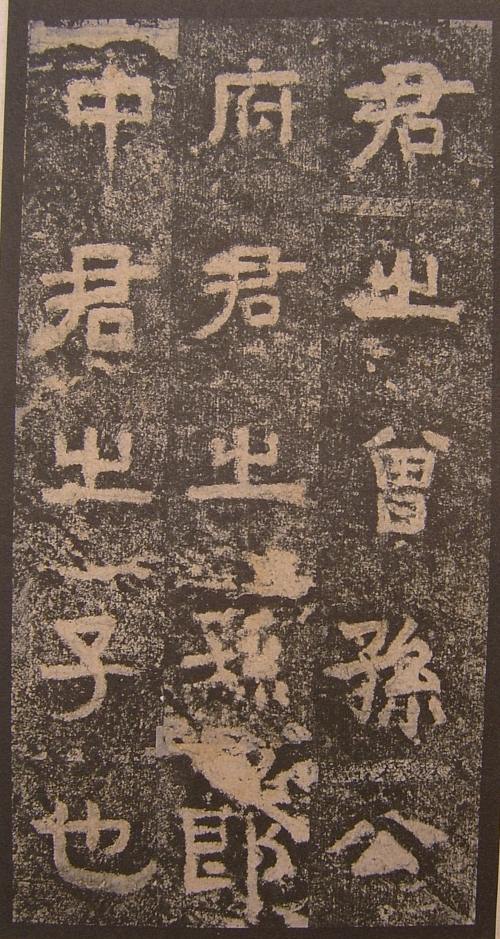 君之曾孫公
府君之孫郎
中君之子也